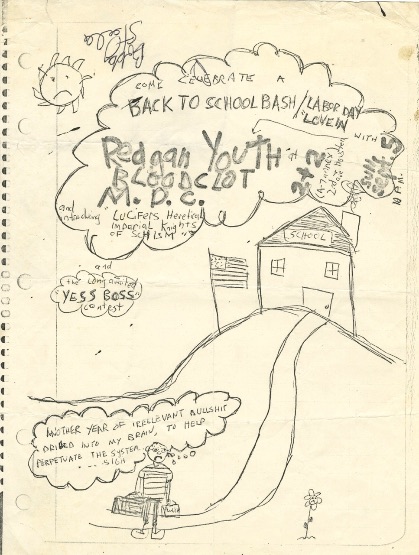 COME CELEBRATE A
BACK TO SCHOOL BASH/LABOR DAY
LOVE IN
WITH
Reagan Youth
BLOODCLOT
M.D.C.
at
2+2
Sun. Sept. 5
and introducing LUCIFERS Heretical
Imperial Knights
OF SCHISM
SCHOOL
and
the long awaited
"YESS BOSS"
contest
ANOTHER YEAR OF IRRELEVANT BULLSHIT
DRILLED INTO MY BRAIN, TO HELP
PERPETUATE THE SYSTEM
... SIGH